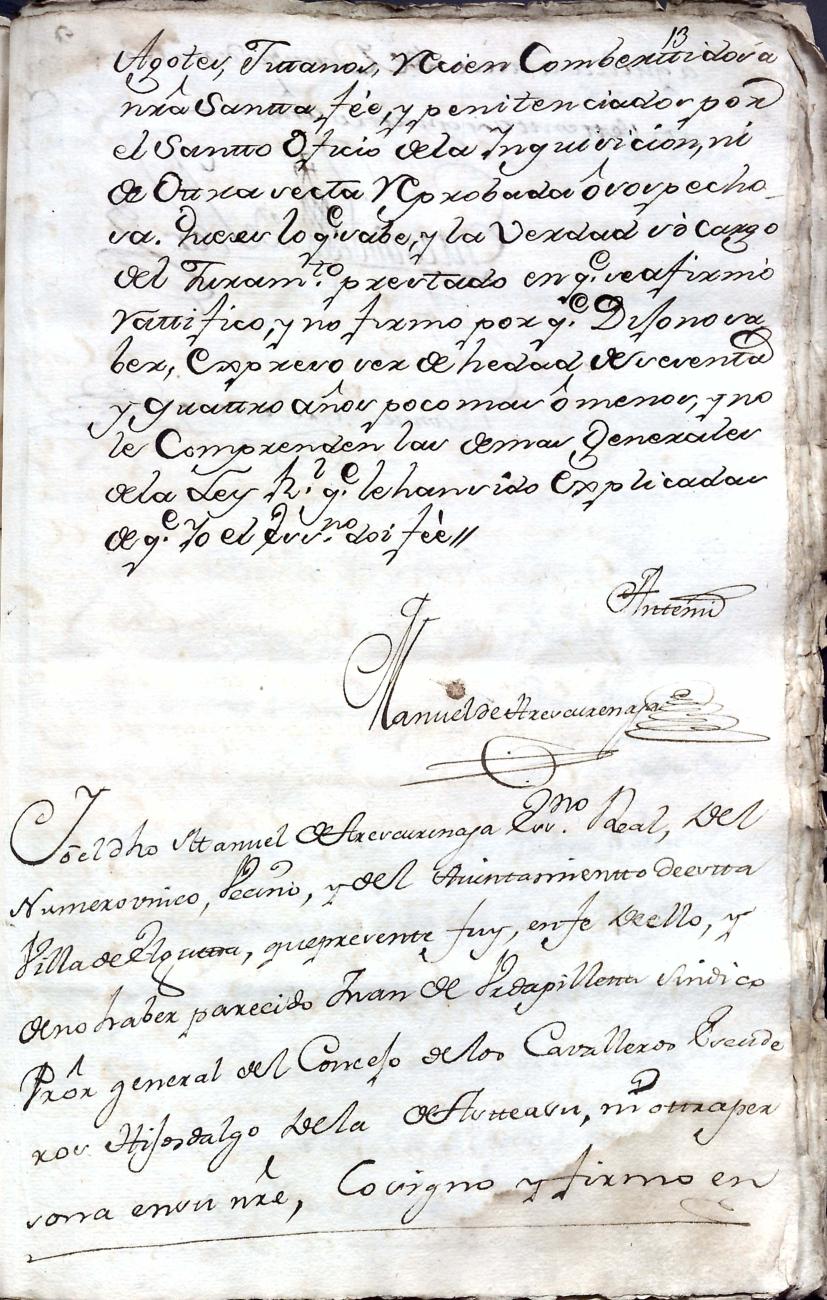 13
Agotes, Jittanos, Rêcien Comberttidos a
nrâ Santta feé, y penitenciados por
el Santto Oficio de la Inquisicion, ni
de Ottra secta Rêprobada ô sospecho-
sa. Que es lo q.e sabe, y la Verdad só cargo
del Juram.to prestado en q.e se afirmó
rattifico, y no firmo por q.e Dijo no sa
ber, Expreso ser de hedad, de setenta
y quattro años poco mas ô menos, y no
le Comprenden las demas Generales
de la Ley R.l q.e le han sido Explicadas
de q.e Yo el Ess.no doi feè//
Antemi
Manuel de Arescurenaga
Yo el dho Manuel de Arescurenaga Ess.no Real, del
Numero vnico, Vecino, y del Aiuntamientto de esta
Villa de Elguetta, que presente fuy, en fe de ello, y
de no haber parecido Juan de Vrdapilletta Sindico
Prôr general del Concejo de los Cavalleros Escude
ros Hijosdalgo de la de Astteasu, ni ottra per
sona en su nrê, Lo signo y firmo en